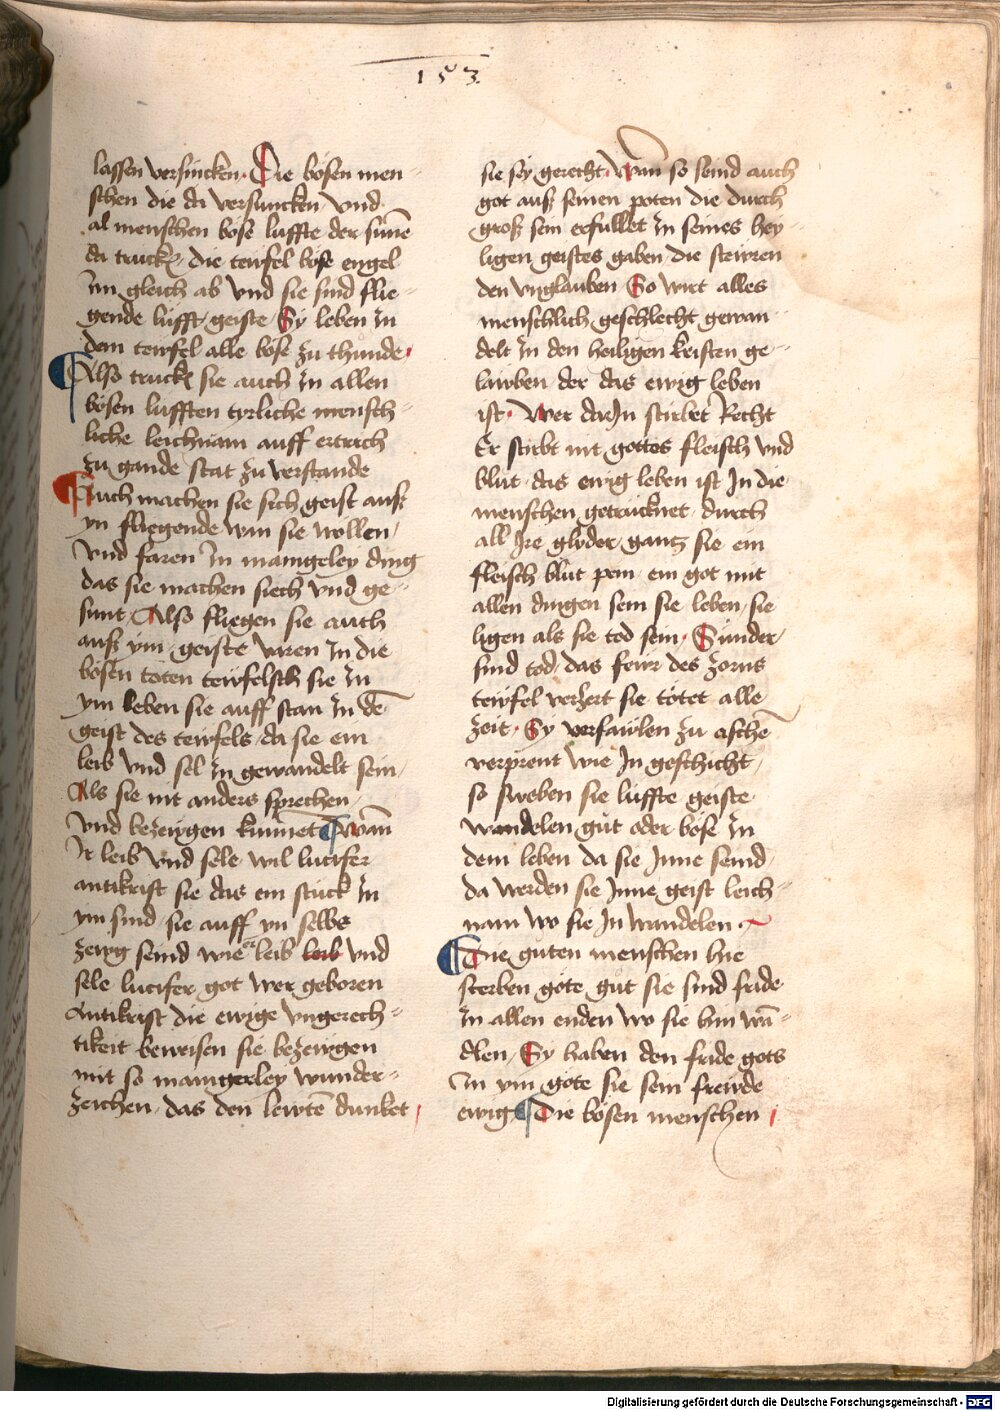 153
lassen versincken. Die bosen men-
schen die da versuncken vnd
al menschen böse luffte der sünē
da truckē, die tewfel böse engel
Im gleich ab vnd sie sind flie-
gende lüfft geiste Sy leben in
dem tewfel alle böse zu thunde
Also truckē sie auch in allen
bösen lufften tyrliche mensch-
liche leichnam auff ertrich
zu gande stat zu verstande
Auch machen sie sich geist auß
yn fliegende wan sie wollen,
Vnd faren In maingeley ding
das sie machen siech vnd ge-
sunt. Also fliegen sie auch
auß ym geiste varen in die
bösen töten tewfelsch sie in
ym leben sie auff stan in dē
geist des tewfels da sie ein
leib vnd sel in gewandelt sein,
Als sie nit anders sprechen,
Vnd bezewgen kunnet wañ
Ir leib vnd sele wil lucifer
antikrist sie das ein stück in
ym sind sie auff yn selbs
zewg seind wie leib leib vnd
sele lucifer got wer geboren
Antikrist die ewige vngerech-
tikeit beweisen sie bezewgen
mit so maingerley wunder-
zeichen, das den lewtē dunket
sie sey gerecht. Wañ so seind auch
got auß seinen poten die durch
groß sein erfullet in seines hey-
ligen geistes gaben die stewren
den vnglauben So wirt alles
menschlich geschlecht gewan-
delt in den heiligen kristen ge-
lawben der das ewig leben
ist. Wer darIn stirbet Recht
Er stirbt mit gottes fleisch vnd
blut das ewig leben ist In die
menschen getrucknet durch
all Ire glyder gantz sie ein
fleisch blut pein ein got mit
allen dingen sein sie leben, sie
ligen als sie tod sein. Sünder
sind tod das fewr des zorns
tewfel verzert sie tötet alle
zeit. Sy verfawlen zu aschē
verprent wie In geschicht,
so sweben sie luffte geiste
wandelen gut oder böse in
dem leben da sie Inne seind
da werden sie Inne geist leich-
nam wo sie In wandelen
Die guten menschen hie
sterben gote gut sie sind fride
in allen enden wo sie hin wā-
dlen, Sy haben den fride gots
In ym gote sie sein frewde
ewig Die bösen menschen
Digitalisierung gefördert durch die Deutsche Forschungsgemeinschaft - DFG